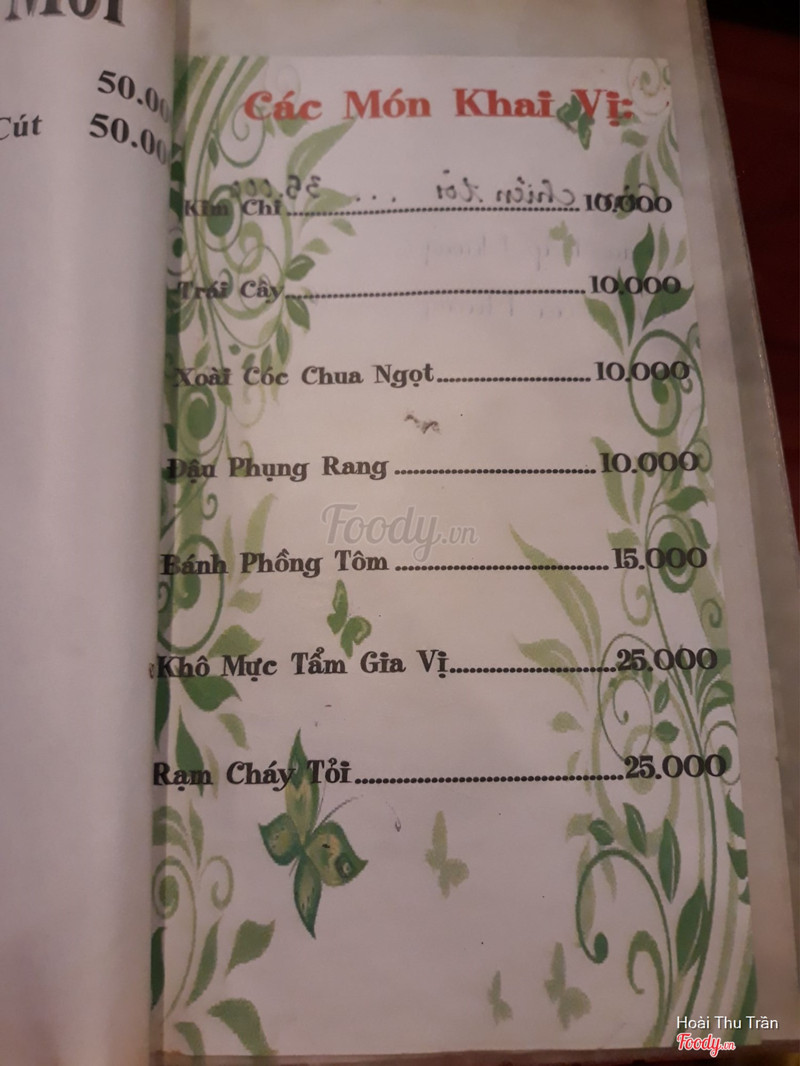 50.00
Cút 50.00
Các Món Khai Vị:
Kim Chi 10.000
Trái Cây 10.000
Xoài Cóc Chua Ngọt 10.000
Đậu Phụng Rang 10.000
Foody.vn
Bánh Phồng Tôm 15.000
Khô Mực Tẩm Gia Vị 25.000
Rạm Cháy Tỏi 25.000
Hoài Thu Trần
Foody.vn